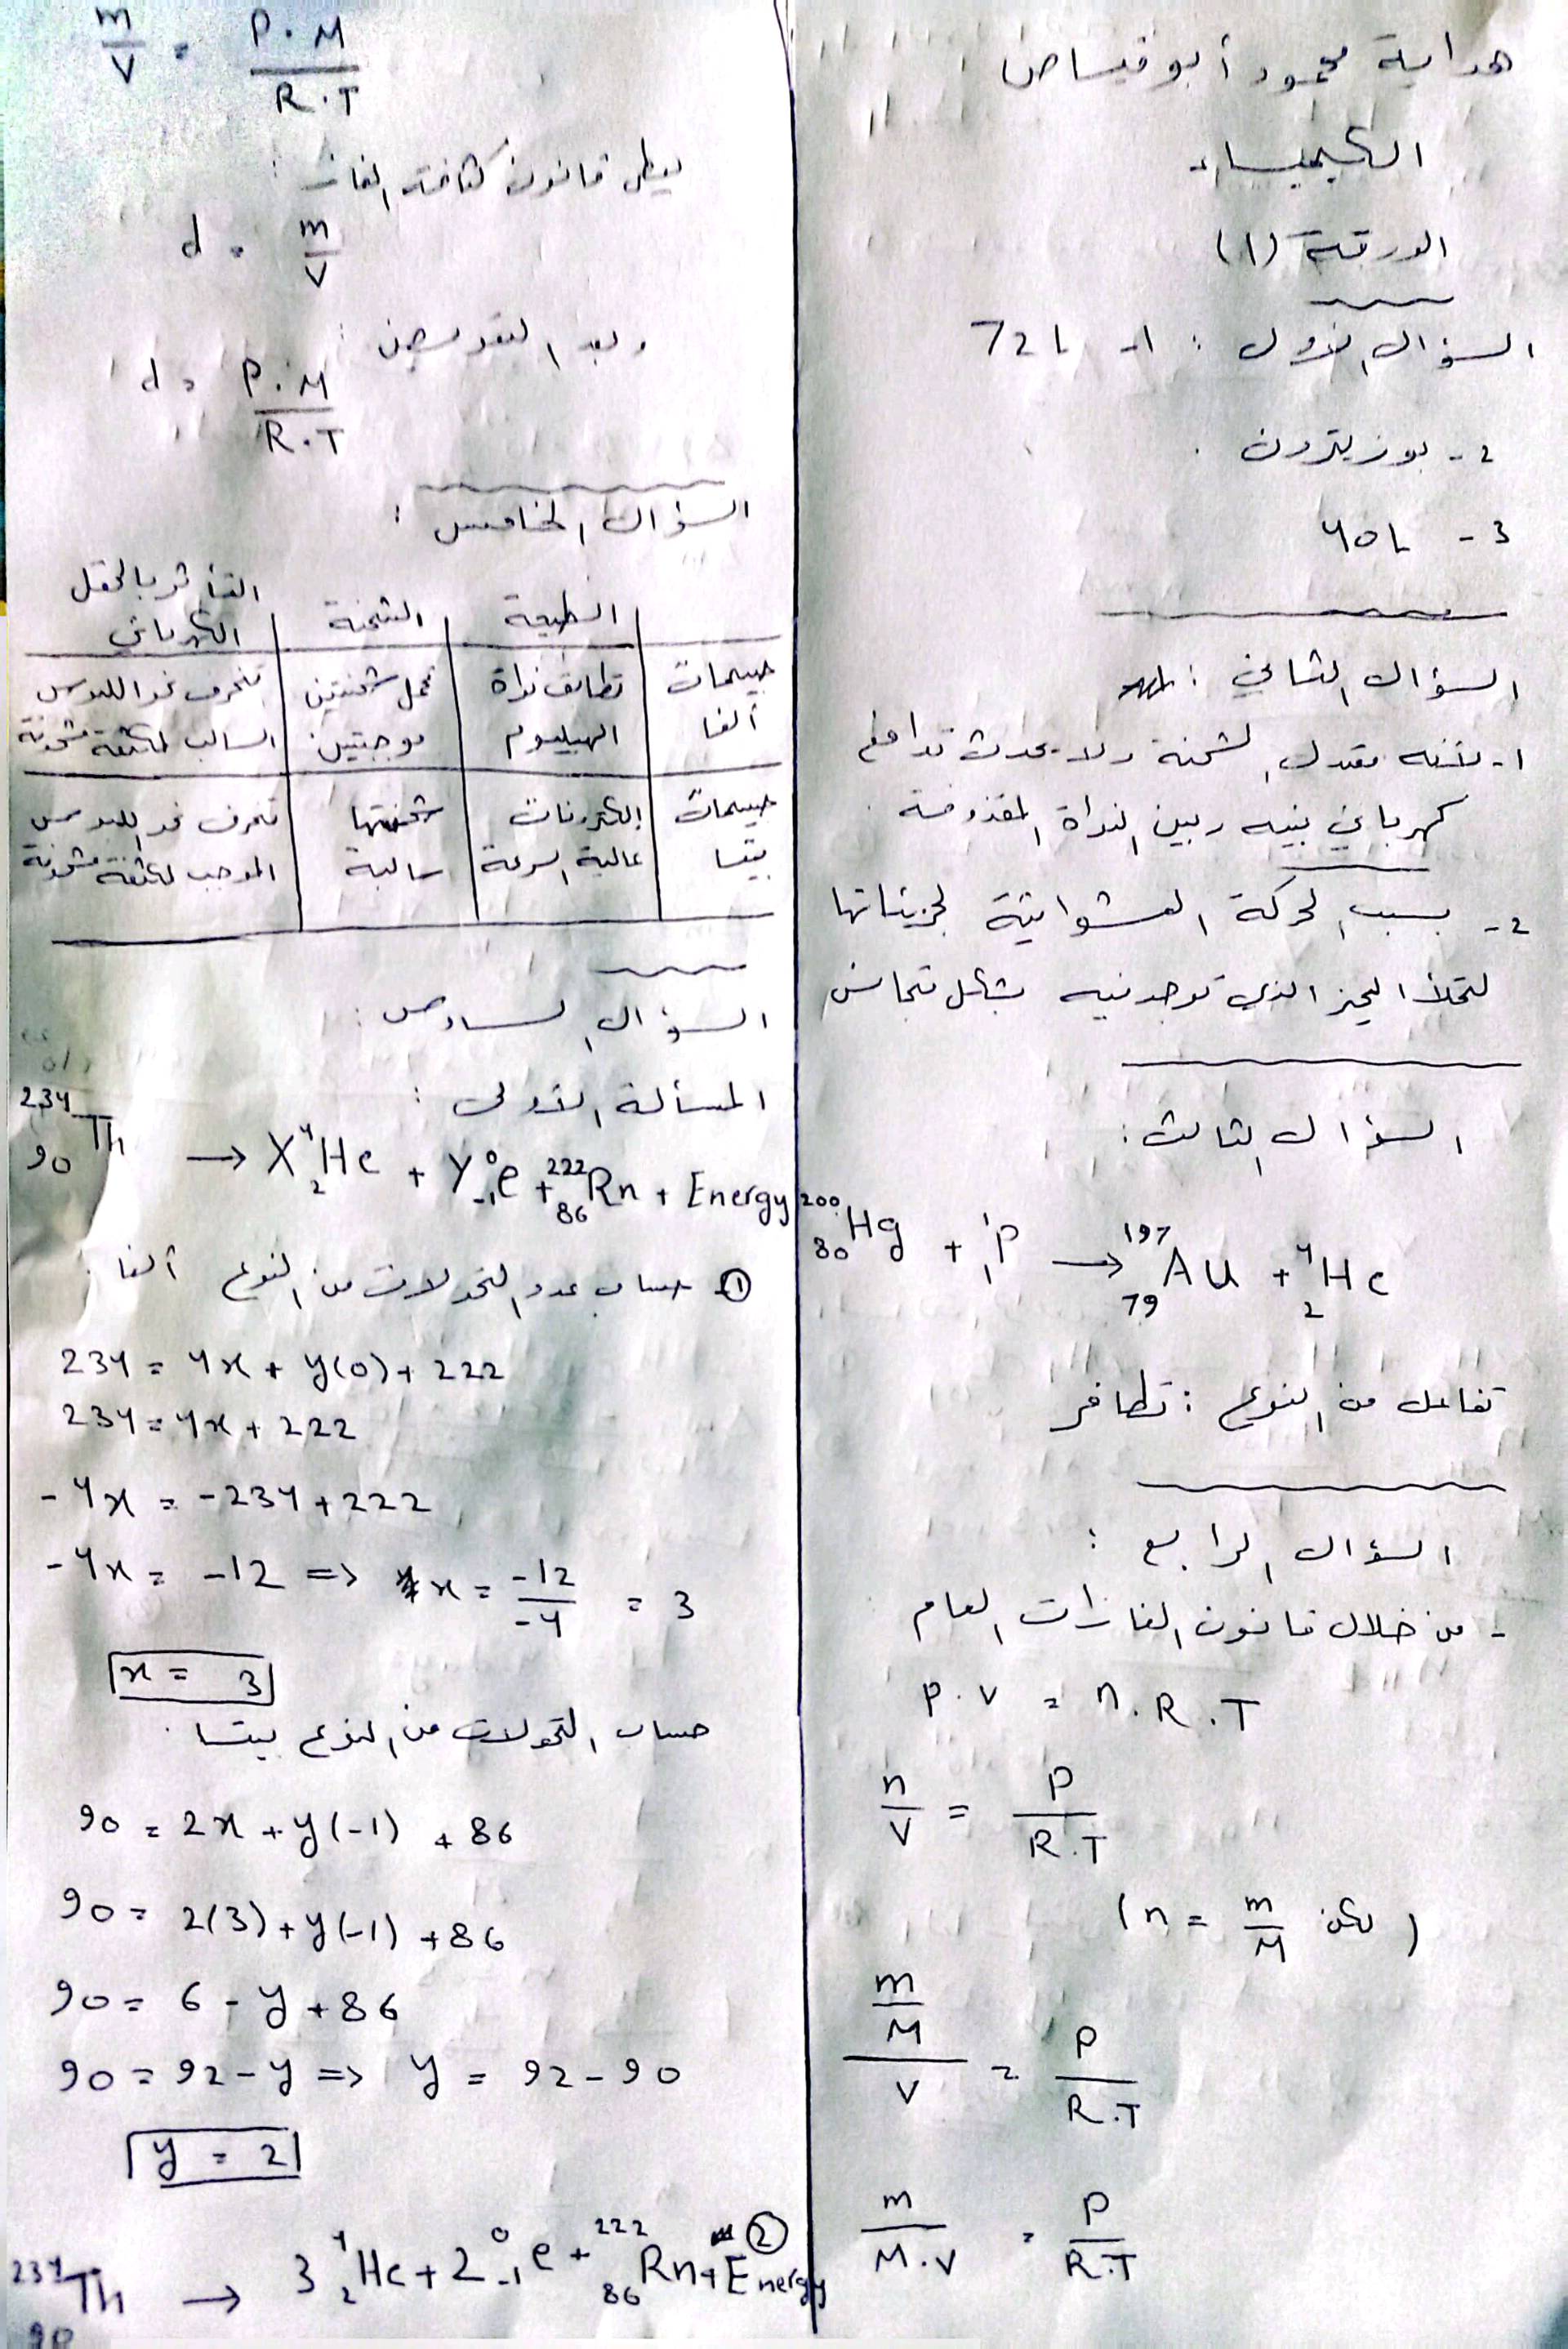 هداية محمود أبو قياص
الكيمياء
الورقة (1)
السؤال الأول : 1- 72 L
2- بوزيترون
3- 40L
السؤال الثاني :
1- لأنه معتدل الشحنة ولا يحدث تدافع
كهربائي بينه وبين النواة المقذوفة
2- بسبب الحركة العشوائية لجزيئاتها
لتملأ الحيز الذي توجد فيه بشكل متجانس
السؤال الثالث :
²⁰⁰₈₀Hg + ¹₁P → ¹⁹⁷₇₉Au + ⁴₂He
تفاعل من النوع : تطافر
السؤال الرابع :
- من خلال قانون الغازات العام
P.V = n.R.T
n/V = P/R.T
(لكن n = m/M)
(m/M)/V = P/R.T
m/M.V = P/R.T
m/V = P.M/R.T
يعطى قانون كثافة الغاز :
d = m/V
وبعد التعويض :
d = P.M/R.T
السؤال الخامس :
الطبيعة | الشحنة | التأثر بالحقل الكهربائي
جسيمات ألفا | تطابق نواة الهيليوم | تحمل شحنتين موجبتين | تنحرف نحو اللبوس السالب لمكثفة مشحونة
جسيمات بيتا | إلكترونات عالية السرعة | شحنتها سالبة | تنحرف نحو اللبوس الموجب لمكثفة مشحونة
السؤال السادس :
المسألة الأولى :
²³⁴₉₀Th → X⁴₂He + Y⁰₋₁e + ²²²₈₆Rn + Energy
① حساب عدد التحولات من النوع ألفا .
234 = 4x + y(0) + 222
234 = 4x + 222
-4x = -234 + 222
-4x = -12 => x = -12/-4 = 3
x = 3
حساب التحولات من النوع بيتا .
90 = 2x + y(-1) + 86
90 = 2(3) + y(-1) + 86
90 = 6 - y + 86
90 = 92 - y => y = 92 - 90
y = 2
②
²³⁴₉₀Th → 3⁴₂He + 2⁰₋₁e + ²²²₈₆Rn + Energy